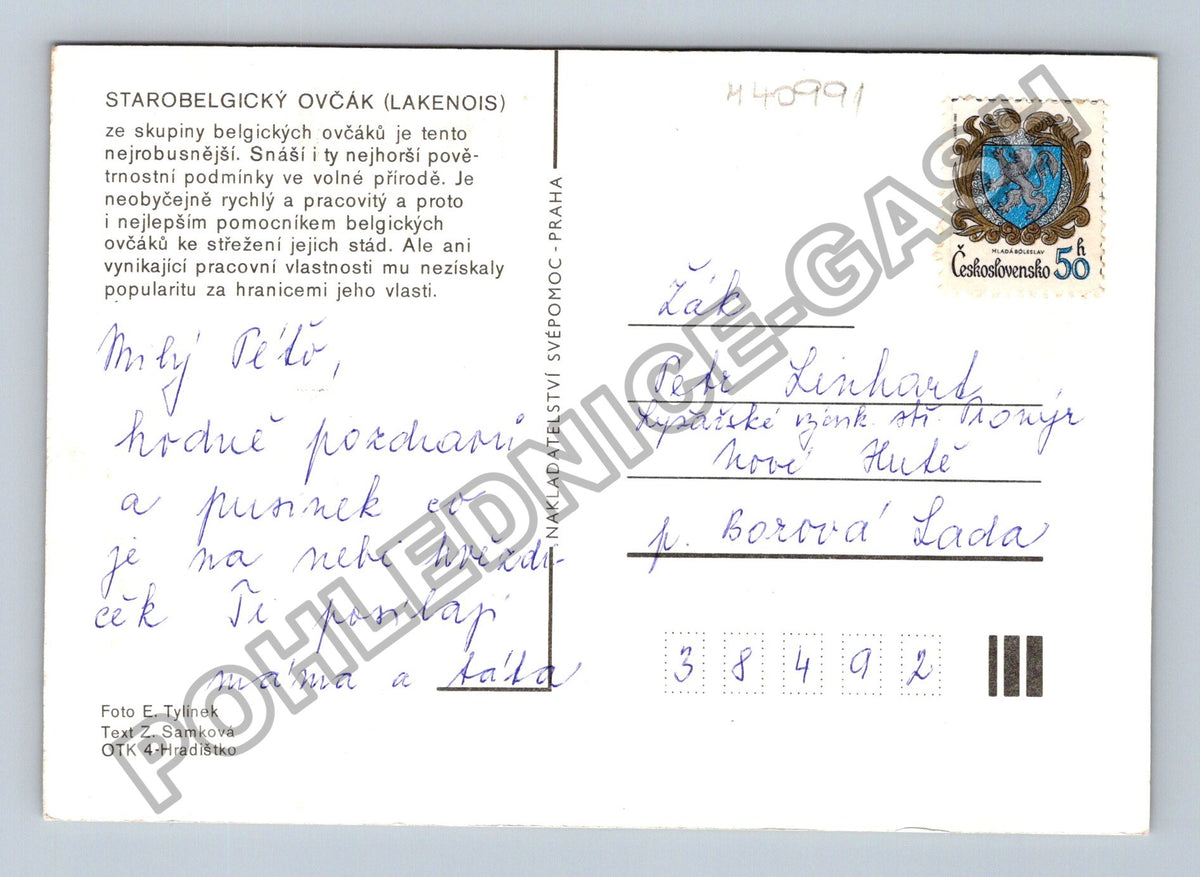 STAROBELGICKÝ OVČÁK (LAKENOIS)
ze skupiny belgických ovčáků je tento
nejrobusnější. Snáší i ty nejhorší pově-
trnostní podmínky ve volné přírodě. Je
neobyčejně rychlý a pracovitý a proto
i nejlepším pomocníkem belgických
ovčáků ke střežení jejich stád. Ale ani
vynikající pracovní vlastnosti mu nezískaly
popularitu za hranicemi jeho vlasti.
Milý Péťo,
hodně pozdravů
a pusinek co
je na nebi hvězdi-
ček Ti posílají
máma a táta
Foto E. Tylínek
Text Z. Samková
OTK 4-Hradištko
NAKLADATELSTVÍ SVÉPOMOC - PRAHA
M40991
MLADÁ BOLESLAV
Československo 50 h
Žák
Petr Linhart
Lyžařské výcvik. stř.
Nové Hutě
p. Borová Lada
38492
POHLEDNICE-GASH